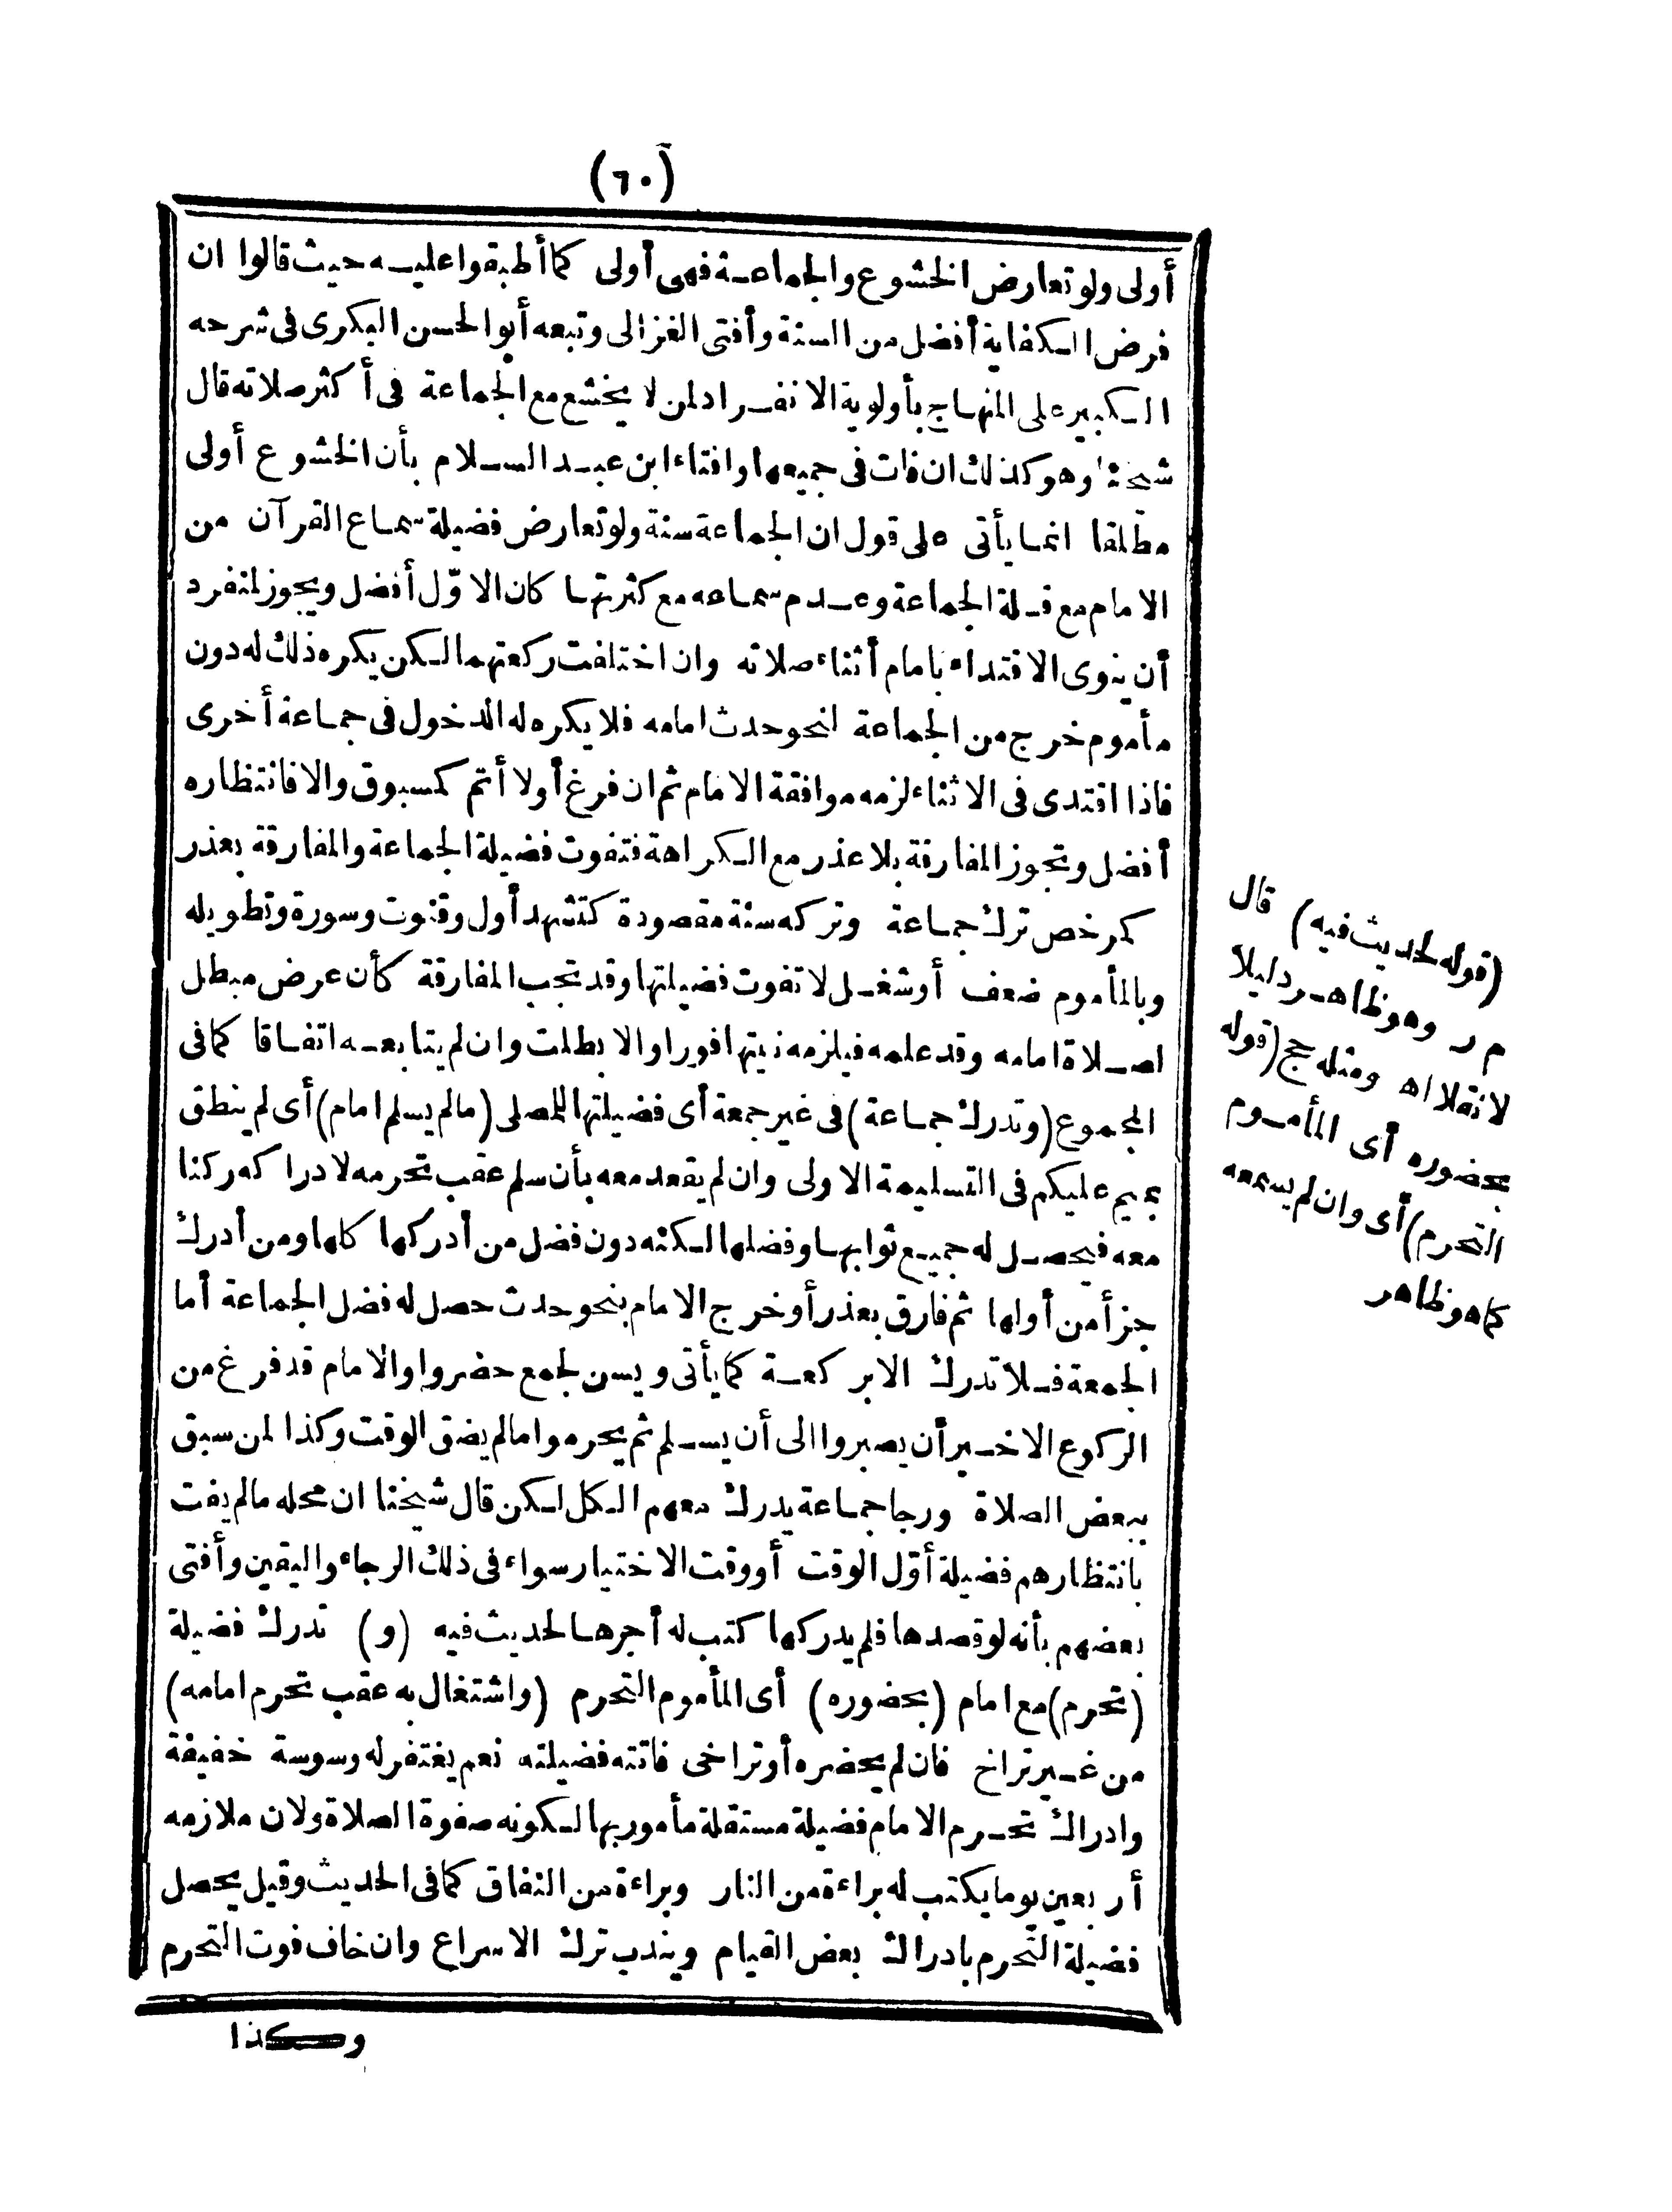 (٦٠)
أولى ولو تعارض الخشوع والجماعة فهى أولى كما أطبقوا عليه حيث قالوا ان
فرض الكفاية أفضل من السنة وأفتى الغزالى وتبعه أبوالحسن البكرى فى شرحه
الكبير على المنهاج بأولوية الانفراد لمن لا يخشع مع الجماعة فى أكثر صلاته قال
شيخنا وهو كذلك ان فات فى جميعها وافتاء ابن عبد السلام بأن الخشوع أولى
مطلقا انما يأتى على قول ان الجماعة سنة ولو تعارض فضيلة سماع القرآن من
الامام مع قلة الجماعة وعدم سماعه مع كثرتها كان الاوّل أفضل ويجوز لمنفرد
أن ينوى الاقتداء بامام أثناء صلاته وان اختلفت ركعتهما لكن يكره ذلك له دون
مأموم خرج من الجماعة لنحو حدث امامه فلا يكره له الدخول فى جماعة أخرى
فاذا اقتدى فى الاثناء لزمه موافقة الامام ثم ان فرغ أولا أتم كمسبوق والا فانتظاره
أفضل وتجوز المفارقة بلا عذر مع الكراهة فتفوت فضيلة الجماعة والمفارقة بعذر
كمرخص ترك جماعة وتركه سنة مقصودة كتشهد أول وقنوت وسورة وتطويله
وبالمأموم ضعف أو شغل لا تفوت فضيلتها وقد تجب المفارقة كأن عرض مبطل
لصلاة امامه وقد علمه فيلزمه نيتها فورا والا بطلت وان لم يتابعه اتفاقا كما فى
المجموع (وتدرك جماعة) فى غير جمعة أى فضيلتها للمصلى (مالم يسلم امام) أى لم ينطق
بميم عليكم فى التسليمة الاولى وان لم يقعد معه بأن سلم عقب تحرمه لادراكه ركنا
معه فيحصل له جميع ثوابها وفضلها لكنه دون فضل من أدركها كلها ومن أدرك
جزأ من أولها ثم فارق بعذر أو خرج الامام بنحو حدث حصل له فضل الجماعة أما
الجمعة فلا تدرك الا بركعة كما يأتى ويسن لجمع حضروا والامام قد فرغ من
الركوع الاخير أن يصبروا الى أن يسلم ثم يحرموا مالم يضق الوقت وكذا لمن سبق
ببعض الصلاة ورجا جماعة يدرك معهم الكل لكن قال شيخنا ان محله مالم يفت
بانتظارهم فضيلة أوّل الوقت أو وقت الاختيار سواء فى ذلك الرجاء واليقين وأفتى
بعضهم بأنه لو قصدها فلم يدركها كتب له أجرها لحديث فيه (و) تدرك فضيلة
(تحرم) مع امام (بحضوره) أى المأموم التحرم (واشتغال به عقب تحرم امامه)
من غير تراخ فان لم يحضره أو تراخى فاتته فضيلته نعم يغتفر له وسوسة خفيفة
وادراك تحرم الامام فضيلة مستقلة مأمور بها لكونه صفوة الصلاة ولان ملازمه
أربعين يوما يكتب له براءة من النار وبراءة من النفاق كما فى الحديث وقيل يحصل
فضيلة التحرم بادراك بعض القيام ويندب ترك الاسراع وان خاف فوت التحرم
وكذا
(قوله لحديث فيه) قال
م ر وهو ظاهر دليلا
لا نقلا اه ومثله حج (قوله
بحضوره أى المأموم
التحرم) أى وان لم يسمعه
كما هو ظاهر